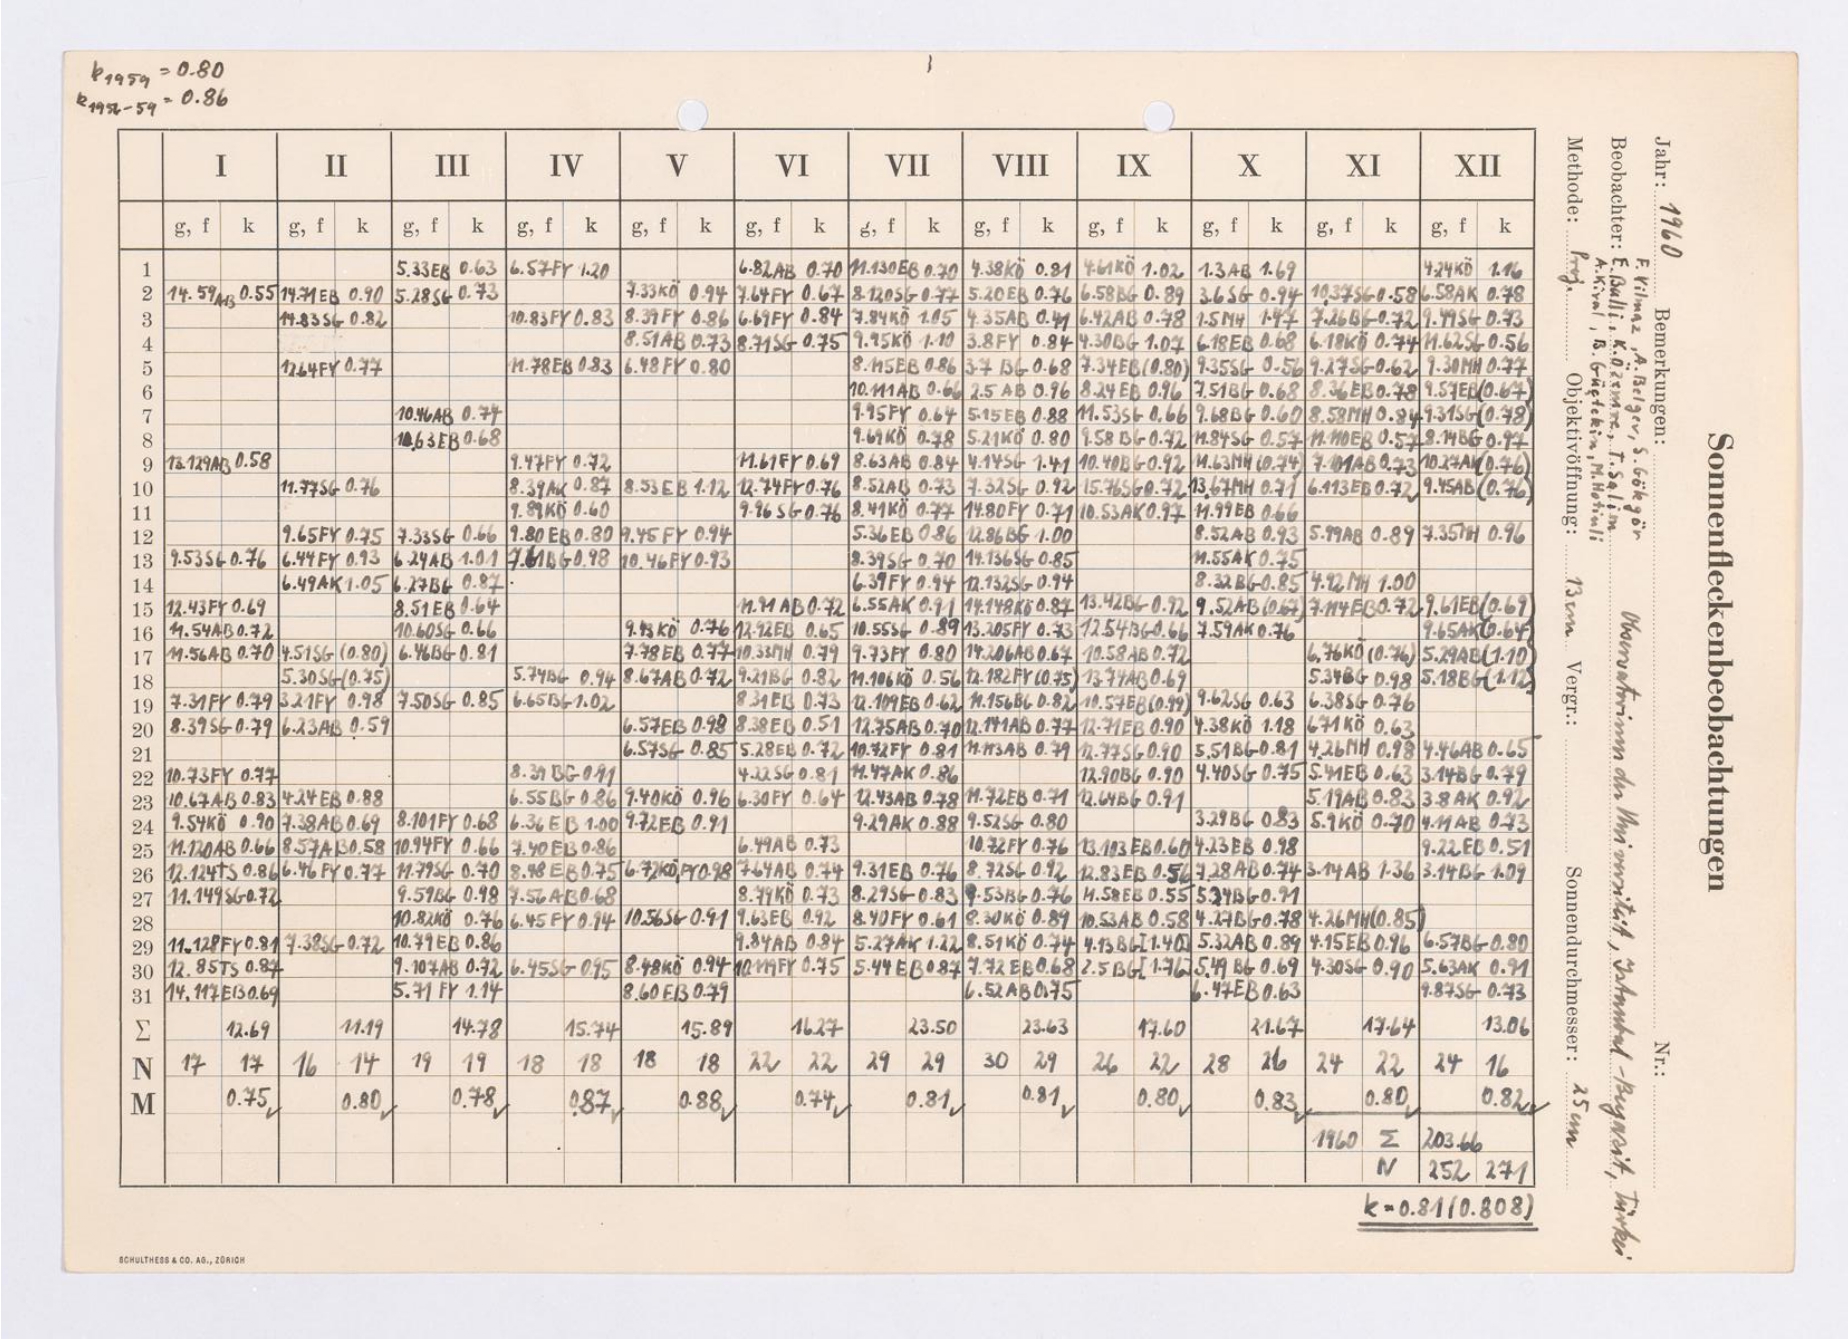 k1959 = 0.80
k1956-59 = 0.86
Sonnenfleckenbeobachtungen
Jahr: 1960 Bemerkungen: Nr.:
F. Yilmaz, A. Belger, S. Gökgör
Beobachter: E. Balli, K. Özemre, T. Salim Observatorium der Universität, Istanbul-Beyazit, Türkei
A. Kiral, B. Güçtekin, M. Hotinli
Methode: Proj. Objektivöffnung: 13 cm Vergr.: Sonnendurchmesser: 25 cm
I II III IV V VI VII VIII IX X XI XII
g, f k g, f k g, f k g, f k g, f k g, f k g, f k g, f k g, f k g, f k g, f k g, f k
1 5.33EB 0.63 6.57FY 1.20 6.82AB 0.70 11.130EB 0.70 4.38KÖ 0.81 4.61KÖ 1.02 1.3AB 1.69 4.24KÖ 1.16
2 14.59AB 0.55 14.71EB 0.90 5.28SG 0.73 7.33KÖ 0.94 7.64FY 0.67 8.120SG 0.77 5.20EB 0.76 6.58BG 0.89 3.6SG 0.94 10.37SG 0.58 6.58AK 0.78
3 14.83SG 0.82 10.83FY 0.83 8.39FY 0.86 6.69FY 0.84 7.84KÖ 1.05 4.35AB 0.41 6.42AB 0.78 1.5MH 1.47 7.26BG 0.72 9.49SG 0.73
4 8.51AB 0.73 8.71SG 0.75 9.95KÖ 1.10 3.8FY 0.84 4.30BG 1.07 6.18EB 0.68 6.18KÖ 0.74 11.62SG 0.56
5 12.64FY 0.77 11.78EB 0.83 6.48FY 0.80 8.115EB 0.86 3.7BG 0.68 7.34EB (0.80) 9.35SG 0.56 9.27SG 0.62 9.30MH 0.77
6 10.111AB 0.66 2.5AB 0.96 8.24EB 0.96 7.51BG 0.68 8.36EB 0.78 9.57EB (0.67)
7 10.46AB 0.74 9.95FY 0.64 5.15EB 0.88 11.53SG 0.66 9.68BG 0.60 8.58MH 0.84 9.31SG (0.78)
8 10.63EB 0.68 9.69KÖ 0.78 5.21KÖ 0.80 9.58BG 0.72 11.84SG 0.57 11.110EB 0.57 8.14BG 0.97
9 13.129AB 0.58 9.47FY 0.72 11.61FY 0.69 8.63AB 0.84 4.14SG 1.41 10.40BG 0.92 11.63MH (0.74) 7.101AB 0.73 10.27AK (0.76)
10 11.77SG 0.76 8.39AK 0.87 8.53EB 1.12 12.74FY 0.76 8.52AB 0.73 7.32SG 0.92 15.76SG 0.72 13.67MH 0.71 6.113EB 0.72 9.45AB (0.76)
11 9.89KÖ 0.60 9.96SG 0.76 8.41KÖ 0.77 14.80FY 0.71 10.53AK 0.97 11.99EB 0.66
12 9.65FY 0.75 7.33SG 0.66 9.80EB 0.80 9.45FY 0.94 5.36EB 0.86 12.86BG 1.00 8.52AB 0.93 5.99AB 0.89 7.35MH 0.96
13 9.53SG 0.76 6.44FY 0.93 6.24AB 1.01 7.61BG 0.98 10.46FY 0.93 8.39SG 0.70 14.136SG 0.85 11.55AK 0.75
14 6.49AK 1.05 6.27BG 0.87 6.39FY 0.94 12.132SG 0.94 8.32BG 0.85 4.92MH 1.00
15 12.43FY 0.69 8.51EB 0.64 11.91AB 0.72 6.55AK 0.91 14.148KÖ 0.87 13.42BG 0.92 9.52AB (0.67) 7.114EB 0.72 9.61EB (0.69)
16 11.54AB 0.72 10.60SG 0.66 9.93KÖ 0.76 12.92EB 0.65 10.55SG 0.89 13.205FY 0.73 12.54BG 0.66 7.59AK 0.76 9.65AK (0.64)
17 11.56AB 0.70 4.51SG (0.80) 6.46BG 0.81 7.78EB 0.77 10.33MH 0.79 9.73FY 0.80 14.206AB 0.67 10.58AB 0.72 6.76KÖ (0.76) 5.29AB (1.10)
18 5.30SG (0.75) 5.74BG 0.94 8.67AB 0.72 9.21BG 0.82 11.106KÖ 0.56 12.182FY (0.75) 13.74AB 0.69 5.34BG 0.98 5.18BG (1.12)
19 7.31FY 0.79 3.21FY 0.98 7.50SG 0.85 6.65BG 1.02 8.31EB 0.73 12.109EB 0.62 11.156BG 0.82 10.57EB (0.99) 9.62SG 0.63 6.38SG 0.76
20 8.39SG 0.79 6.23AB 0.59 6.57EB 0.98 8.38EB 0.51 12.75AB 0.70 12.141AB 0.77 12.71EB 0.90 4.38KÖ 1.18 6.71KÖ 0.63
21 6.57SG 0.85 5.28EB 0.72 10.72FY 0.81 11.113AB 0.79 12.77SG 0.90 5.51BG 0.81 4.26MH 0.98 4.46AB 0.65
22 10.73FY 0.77 8.39BG 0.91 4.22SG 0.81 11.47AK 0.86 12.90BG 0.90 4.40SG 0.75 5.41EB 0.63 3.14BG 0.79
23 10.67AB 0.83 4.24EB 0.88 6.55BG 0.86 9.40KÖ 0.96 6.30FY 0.64 12.43AB 0.78 11.72EB 0.71 12.64BG 0.91 5.19AB 0.83 3.8AK 0.92
24 9.54KÖ 0.90 7.38AB 0.69 8.101FY 0.68 6.36EB 1.00 9.72EB 0.91 9.29AK 0.88 9.52SG 0.80 3.29BG 0.83 5.9KÖ 0.70 4.11AB 0.73
25 11.120AB 0.66 8.57AB 0.58 10.94FY 0.66 7.40EB 0.86 6.49AB 0.73 10.72FY 0.76 13.103EB 0.60 4.23EB 0.98 9.22EB 0.51
26 12.124TS 0.86 6.46FY 0.77 11.79SG 0.70 8.48EB 0.75 6.72KÖ,FY 0.98 7.64AB 0.74 9.31EB 0.76 8.72SG 0.92 12.83EB 0.56 7.28AB 0.74 3.14AB 1.36 3.14BG 1.09
27 11.149SG 0.72 9.59BG 0.98 7.56AB 0.68 8.79KÖ 0.73 8.29SG 0.83 9.53BG 0.76 11.58EB 0.55 5.24BG 0.91
28 10.82KÖ 0.76 6.45FY 0.94 10.56SG 0.91 9.63EB 0.92 8.40FY 0.61 8.30KÖ 0.89 10.53AB 0.58 4.27BG 0.78 4.26MH (0.85)
29 11.128FY 0.81 7.38SG 0.72 10.79EB 0.86 9.84AB 0.84 5.27AK 1.22 8.51KÖ 0.74 4.13BG [1.40] 5.32AB 0.89 4.15EB 0.96 6.57BG 0.80
30 12.85TS 0.87 9.107AB 0.72 6.45SG 0.95 8.48KÖ 0.94 10.119FY 0.75 5.44EB 0.87 7.72EB 0.68 2.5BG [1.76] 5.49BG 0.69 4.30SG 0.90 5.63AK 0.91
31 14.117EB 0.69 5.71FY 1.14 8.60EB 0.79 6.52AB 0.75 6.47EB 0.63 9.87SG 0.73
Σ 12.69 11.19 14.78 15.74 15.89 16.27 23.50 23.63 17.60 21.67 17.64 13.06
N 17 17 16 14 19 19 18 18 18 18 22 22 29 29 30 29 26 22 28 26 24 22 24 16
M 0.75 0.80 0.78 0.87 0.88 0.74 0.81 0.81 0.80 0.83 0.80 0.82
1960 Σ 203.66
N 252 271
k = 0.81 (0.808)
SCHULTHESS & CO. AG., ZÜRICH